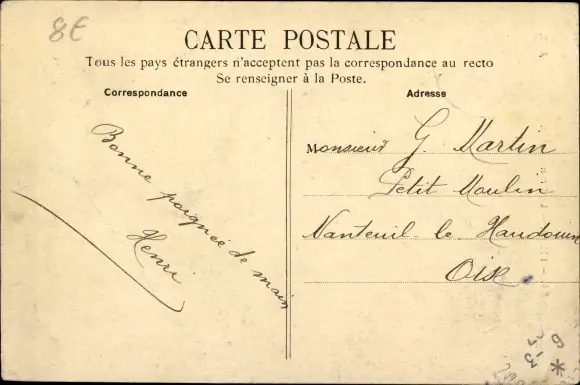 8€
CARTE POSTALE
Tous les pays étrangers n'acceptent pas la correspondance au recto
Se renseigner à la Poste.
Correspondance
Bonne poignée de main
Henri
Adresse
Monsieur G. Martin
Petit Moulin
Nanteuil-le Haudouin
Oise